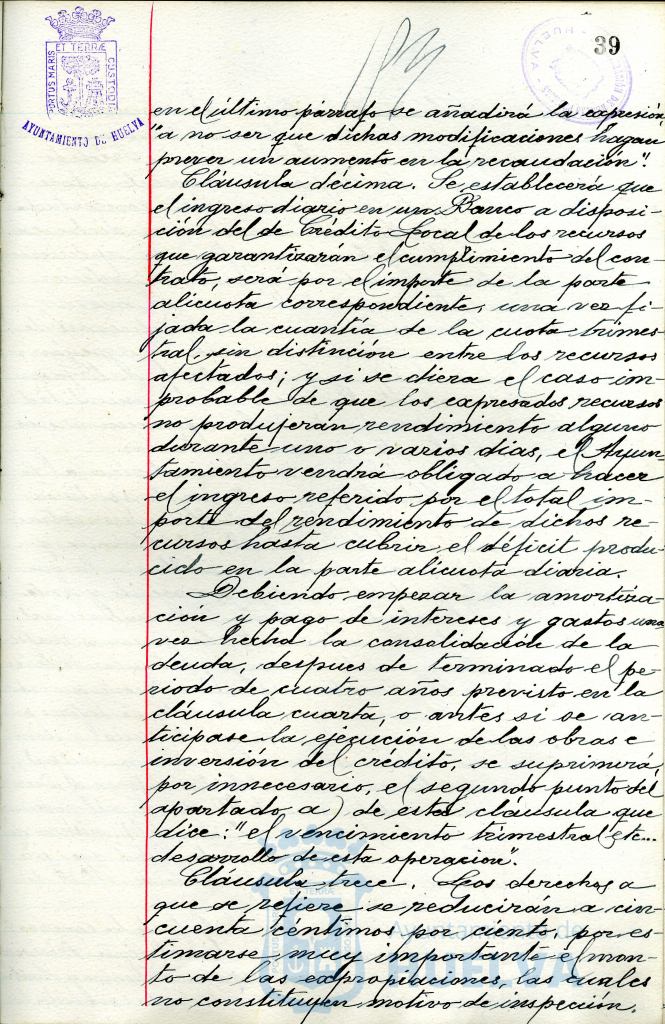 PORTUS MARIS ET TERRÆ CUSTODIA
AYUNTAMIENTO DE HUELVA
39
en el último párrafo se añadirá la expresión
"a no ser que dichas modificaciones hagan
prever un aumento en la recaudación".
Cláusula décima. Se establecerá que
el ingreso diario en un Banco a disposi-
ción del de Crédito Local de los recursos
que garantizarán el cumplimiento del con-
trato, será por el importe de la parte
alicuota correspondiente, una vez fi-
jada la cuantía de la cuota trimes-
tral, sin distinción entre los recursos
afectados; y si se diera el caso im-
probable de que los expresados recursos
no produjeran rendimiento alguno
durante uno o varios dias, el Ayun-
tamiento vendrá obligado a hacer
el ingreso referido por el total im-
porte del rendimiento de dichos re-
cursos hasta cubrir el déficit produ-
cido en la parte alicuota diaria.
Debiendo empezar la amortiza-
ción y pago de intereses y gastos una
vez hecha la consolidación de la
deuda, despues de terminado el pe-
riodo de cuatro años previsto en la
cláusula cuarta, o antes si se an-
ticipase la ejecución de las obras e
inversión del crédito, se suprimirá,
por innecesario, el segundo punto del
apartado a) de esta cláusula que
dice: "el vencimiento trimestral etc...
desarrollo de esta operacion".
Cláusula trece. Los derechos a
que se refiere se reducirán a cin-
cuenta céntimos por ciento, por es-
timarse muy importante el mon-
to de las expropiaciones, las cuales
no constituyen motivo de inspección.
Ayuntamiento de
HUELVA